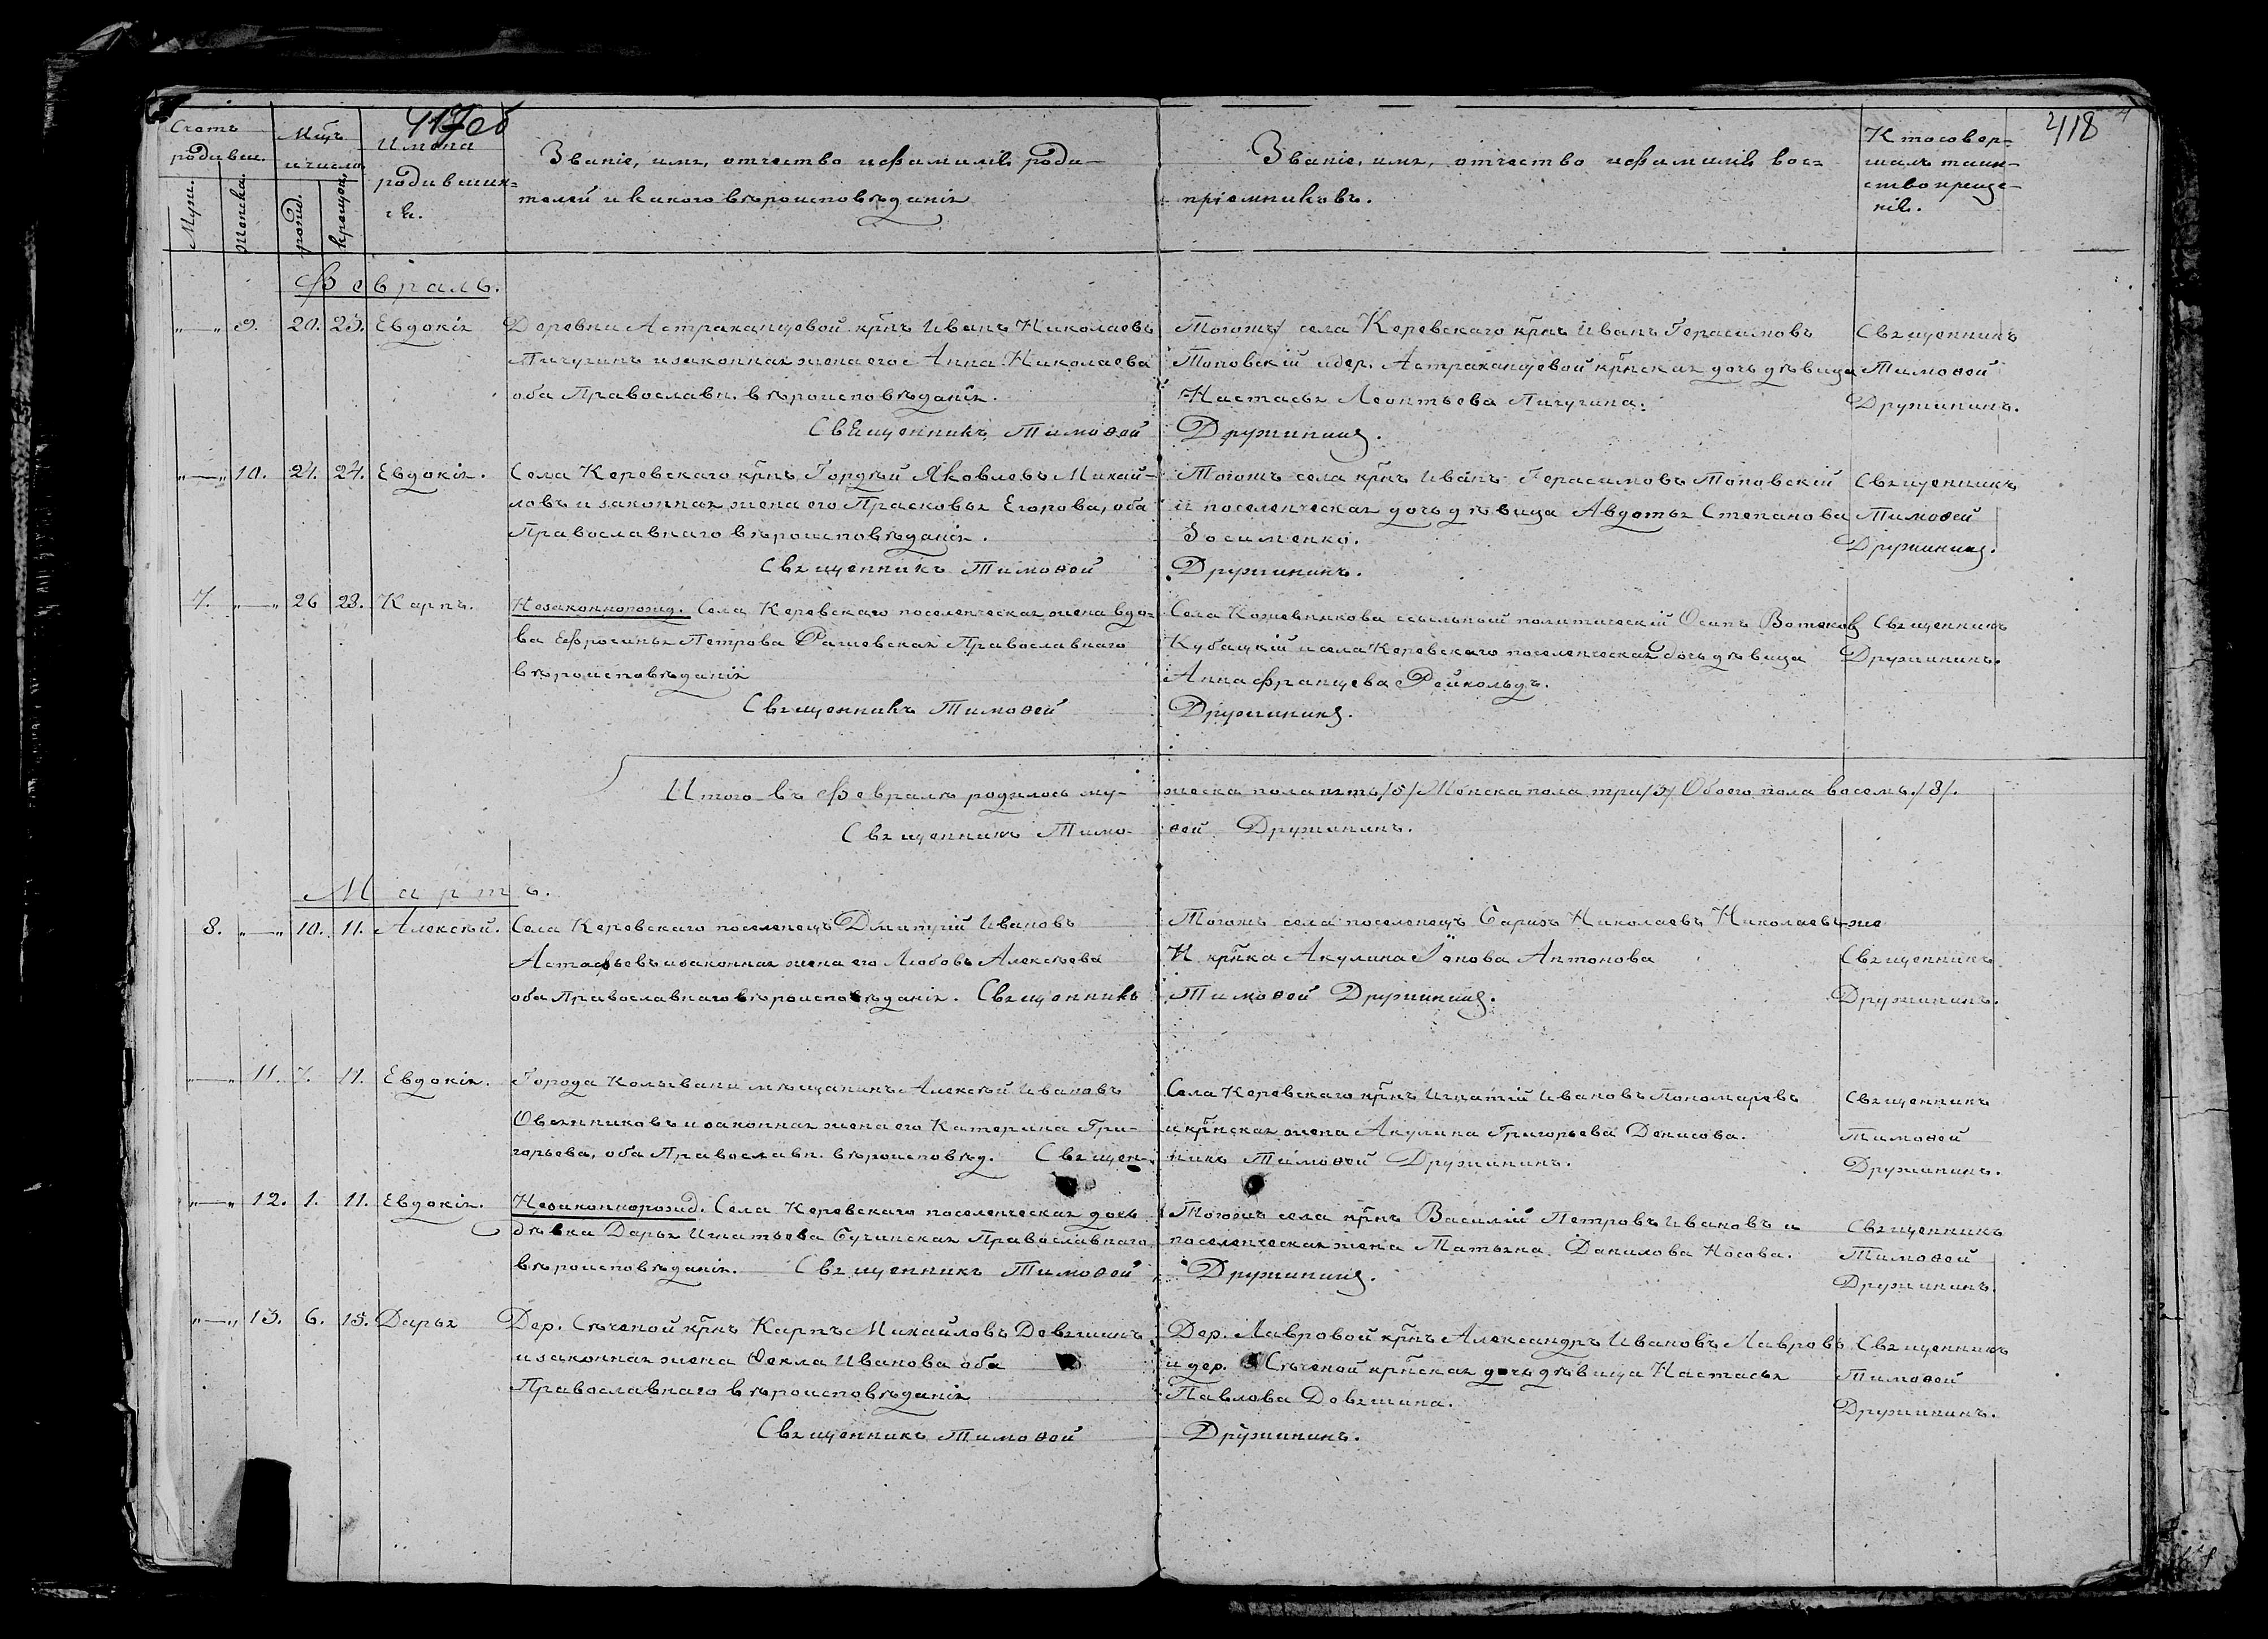 417об
418
Счетъ родивш.
Муж.
Женска.
Мцъ и число
рожд.
крещен.
Имена родивших-ся.
Званіе, имя, отчество и фамилія роди-
телей и какого вѣроисповѣданія
Званіе, имя, отчество и фамилія вос=
пріемниковъ.
Кто совер-
шалъ таин-
ство креще-
нія.
Февраль.
„—„ 9. 20. 23. Евдокія Деревни Астраханцевой крнъ Иванъ Николаевъ
Пичугинъ и законная жена его Анна Николаева
оба Православн. вѣроисповѣданія.
Священникъ Тимоѳей Дружининъ.
Тогожъ села Керевскаго крнъ Иванъ Герасимовъ
Поповскій и дер. Астраханцевой крнская дочь дѣвица
Настасья Леонтьева Пичугина.
Священникъ
Тимоѳей
Дружининъ.
„—„ 10. 24. 24. Евдокія. Села Керевскаго крнъ Гордѣй Яковлевъ Михай-
ловъ и законная жена его Прасковья Егорова, оба
Православнаго вѣроисповѣданія.
Священникъ Тимоѳей Дружининъ.
Тогожъ села крнъ Иванъ Герасимовъ Поповскій
и поселенческая дочь дѣвица Авдотья Степанова
Зосименко.
Священникъ
Тимоѳей
Дружининъ.
7. „—„ 26 28. Карпъ. Незаконнорожд. Села Керевскаго поселенческая жена вдо-
ва Ефросинья Петрова Рашевская Православнаго
вѣроисповѣданія
Священникъ Тимоѳей Дружининъ.
Села Кожевникова ссыльный политическій Осипъ
Кубацкій и села Керевскаго поселенческая дочь дѣвица
Анна Францева Рейкольдъ.
Священникъ
Дружининъ.
Итого въ Февралѣ родилось му-жеска пола пять /5/ Женска пола три /3/ Обоего пола восемь. /8/.
Священникъ Тимо-ѳей Дружининъ.
Мартъ.
8. „—„ 10. 11. Алексѣй. Села Керевскаго поселенецъ Дмитрій Ивановъ
Астафьевъ и законная жена его Любовь Алексѣева
оба Православнаго вѣроисповѣданія. Священникъ Тимоѳей Дружининъ.
Тогожъ села поселенецъ Николаевъ Николаевъ же
И крнка Акулина Антонова
Священникъ
Дружининъ.
„—„ 11. 7. 11. Евдокія. Города Колывани мѣщанинъ Алексѣй Ивановъ
Овчинниковъ и законная жена его Катерина Гри-
горьева, оба Православн. вѣроисповѣд. Священ-никъ Тимоѳей Дружининъ.
Села Керевскаго крнъ Игнатій Ивановъ Пономаревъ
и крнская жена Акулина Григорьева Денисова.
Священникъ
Тимоѳей
Дружининъ.
„—„ 12. 1. 11. Евдокія. Незаконнорожд. Села Керевскаго поселенческая дочь
дѣвка Дарья Игнатьева Бучинская Православнаго
вѣроисповѣданія. Священникъ Тимоѳей Дружининъ.
Тогожъ села крнъ Василій Петровъ Ивановъ и
поселенческая жена Татьяна Данилова Носова.
Священникъ
Тимоѳей
Дружининъ.
„—„ 13. 6. 15. Дарья Дер. Сѣченой крнъ Карпъ Михайловъ Девяшинъ
и законная жена Ѳекла Иванова оба
Православнаго вѣроисповѣданія
Священникъ Тимоѳей Дружининъ.
Дер. Лавровой крнъ Александръ Ивановъ Лавровъ
и дер. Сѣченой крнская дочь дѣвица Настасья
Павлова Девяшина.
Священникъ
Тимоѳей
Дружининъ.